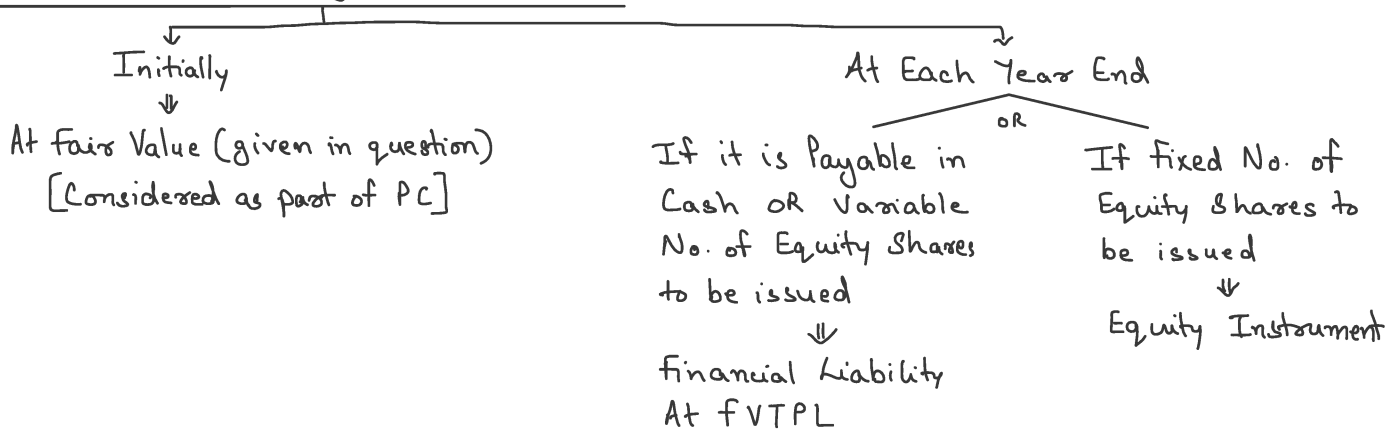 Initially
At Fair Value (given in question)
[Considered as part of PC]
At Each Year End
OR
If it is Payable in
Cash OR Variable
No. of Equity Shares
to be issued
Financial Liability
At FVTPL
If Fixed No. of
Equity Shares to
be issued
Equity Instrument